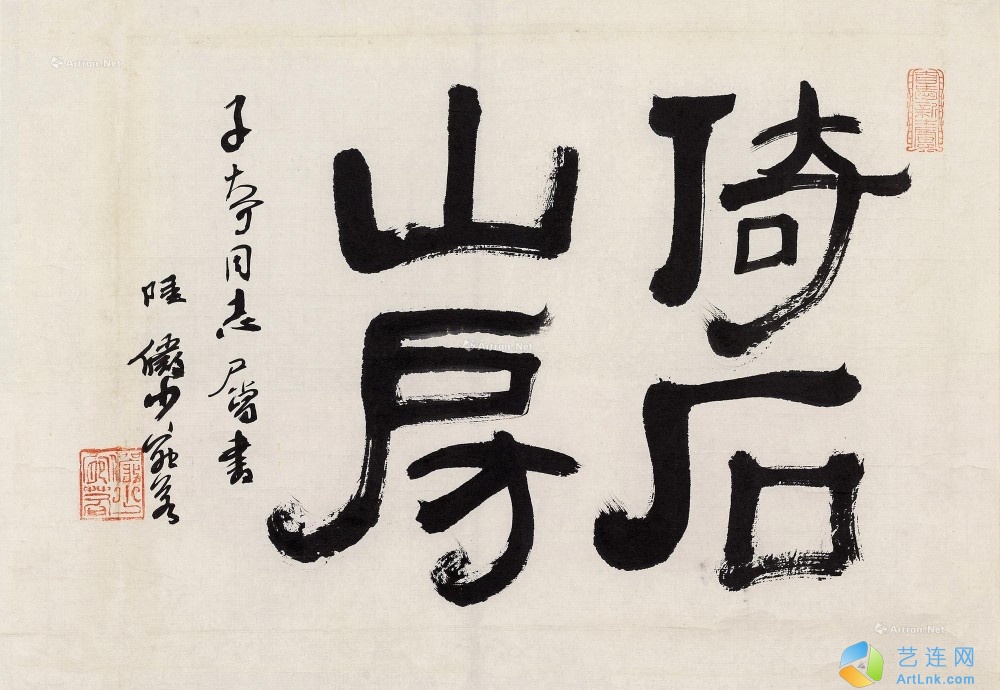 倚石
山房
子奇同志屬書
陸儼少宛若
儼少
宛若
Artron.Net
Artron.Net
Artron.Net
艺连网
ArtLnk.com